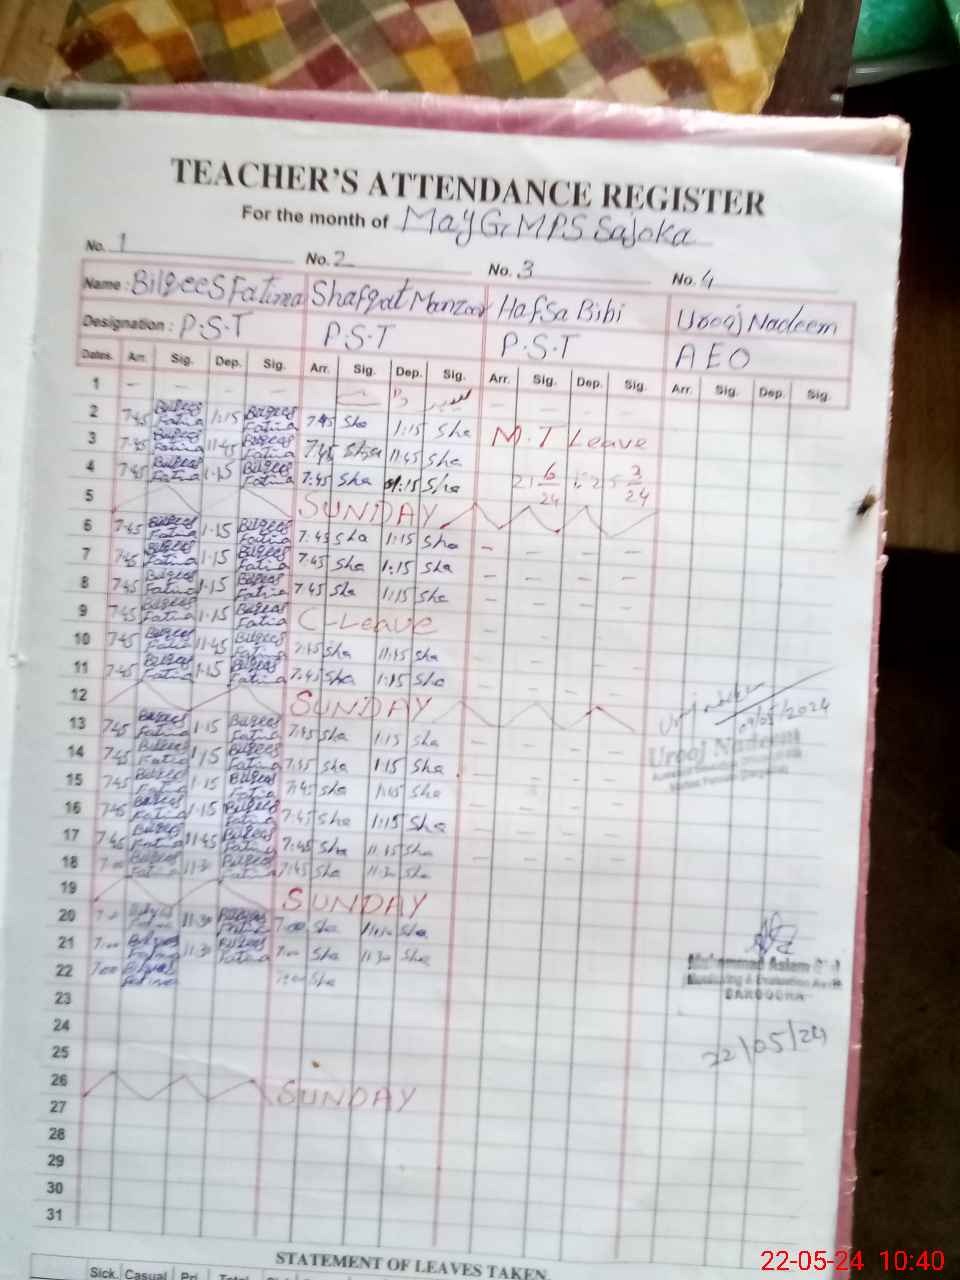 TEACHER'S ATTENDANCE REGISTER
For the month of May G.MPS Sajoka
No. 1 No. 2 No. 3 No. 4
Name: Bilqees Fatima Shafqat Manzoor Hafsa Bibi Urooj Nadeem
Designation: P.S.T P.S.T P.S.T AEO
Dates. Arr. Sig. Dep. Sig. Arr. Sig. Dep. Sig. Arr. Sig. Dep. Sig. Arr. Sig. Dep. Sig.
1 - - - - - - - -
2 7:45 Bilqees Fatima 1:15 Bilqees Fatima 7:45 Sha 1:15 Sha M.T Leave
3 7:45 Bilqees Fatima 11:45 Bilqees Fatima 7:45 Sha 11:45 Sha
4 7:45 Bilqees Fatima 1.15 Bilqees Fatima 7:45 Sha 1:15 Sha
5 SUNDAY
6 7:45 Bilqees Fatima 1.15 Bilqees Fatima 7:45 Sha 1:15 Sha - - - -
7 7:45 Bilqees Fatima 1.15 Bilqees Fatima 7:45 Sha 1:15 Sha - - - -
8 7:45 Bilqees Fatima 1.15 Bilqees Fatima 7:45 Sha 1:15 Sha - - - -
9 7:45 Bilqees Fatima 1.15 Bilqees Fatima C-Leave - - - -
10 7:45 Bilqees Fatima 11:45 Bilqees Fatima 7:45 Sha 11:45 Sha - - - -
11 7:45 Bilqees Fatima 1.15 Bilqees Fatima 7:45 Sha 1:15 Sha - - - -
12 SUNDAY
13 7:45 Bilqees Fatima 1.15 Bilqees Fatima 7:45 Sha 1:15 Sha - - - -
14 7:45 Bilqees Fatima 1.15 Bilqees Fatima 7:45 Sha 1:15 Sha - - - -
15 7:45 Bilqees Fatima 1.15 Bilqees Fatima 7:45 Sha Sha - - - -
16 7:45 Bilqees Fatima 1.15 Bilqees Fatima 7:45 Sha 1:15 Sha - - - -
17 7:45 Bilqees Fatima 11:45 Bilqees Fatima 7:45 Sha 11:45 Sha - - - -
18 7:00 Bilqees Fatima 11:30 Bilqees Fatima 7:45 Sha 11:30 Sha
19 SUNDAY
20 Bilqees Fatima 11:30 Bilqees Fatima 7:00 Sha Sha
21 7:00 Bilqees Fatima 11:30 Bilqees Fatima 7:00 Sha 11:30 Sha
22 7:00 Bilqees Fatima 7:00 Sha
23
24
25
26 SUNDAY
27
28
29
30
31
Urooj Nadeem
09/05/2024
Urooj Nadeem
Muhammad Aslam
Monitoring & Evaluation
SARGODHA
22/05/24
STATEMENT OF LEAVES TAKEN.
Sick. Casual Pri. Total
22-05-24 10:40